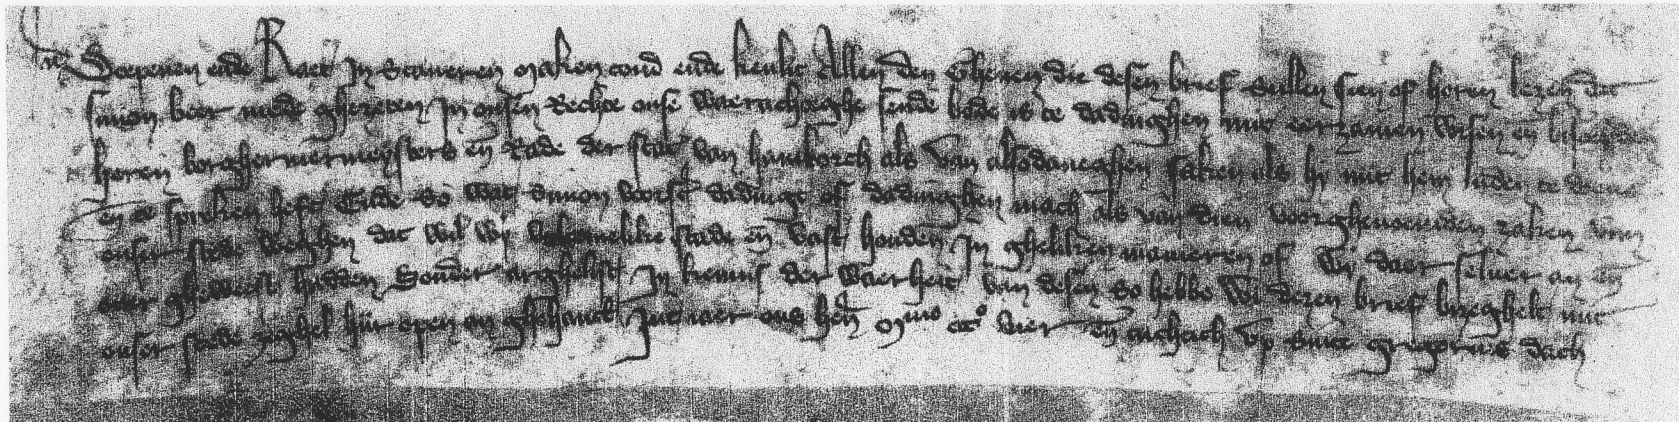 Wi Scepenen ende Raet In Staueren maken cond ende kenlic Allen den Ghenen die desen brief Sullen sien of horen lezen dat
Simon beer mede ghezeten In onsen Rechte onse waerachteghe sende bode is te dadinghen mit eerzamen wisen en̄ bescheden
heren borghermermeysters en̄ Rade der stat van hamborch als van alsodaneghen saken als hy mit hem luden te doene
en̄ te spreken heft Ende So wat Simon voirs dadingt of dadinghen mach als van dien voirghenoemden zaken van
onser stede weghen dat wil wy volcomelike stade en̄ vast houden In gheliken manieren of wy daer seluer an en̄
ouer gheweest hadden Sonder arghelist In kennis der waerheit van desen So hebbe wi dezen brief bezeghelt mit
onser stede zeghel hiir open an ghehanct Int iaer ons heren Mᵐᵒ ccᶜᵒ vier en̄ tachtich vp Sinte gregorius dach